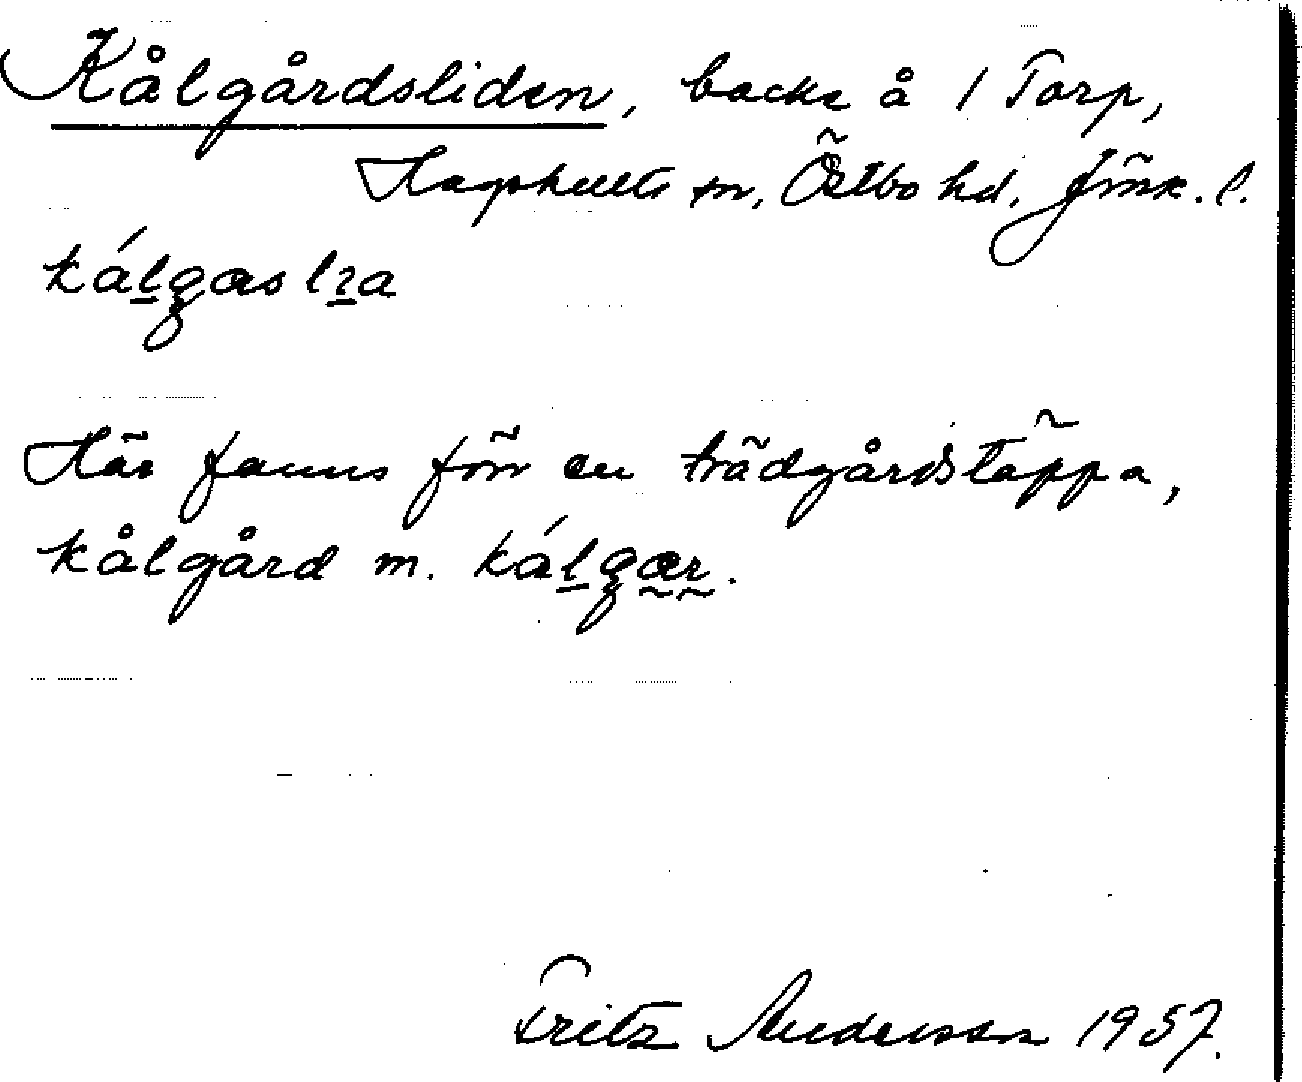 Kålgårdsliden, backe å 1 Torp,
Hagshults sn, Östbo hd. Jönk. l.
kálgas lıa
Här fanns förr en trädgårdstäppa,
kålgård m. kálgær.
Fritz Andersson 1957.